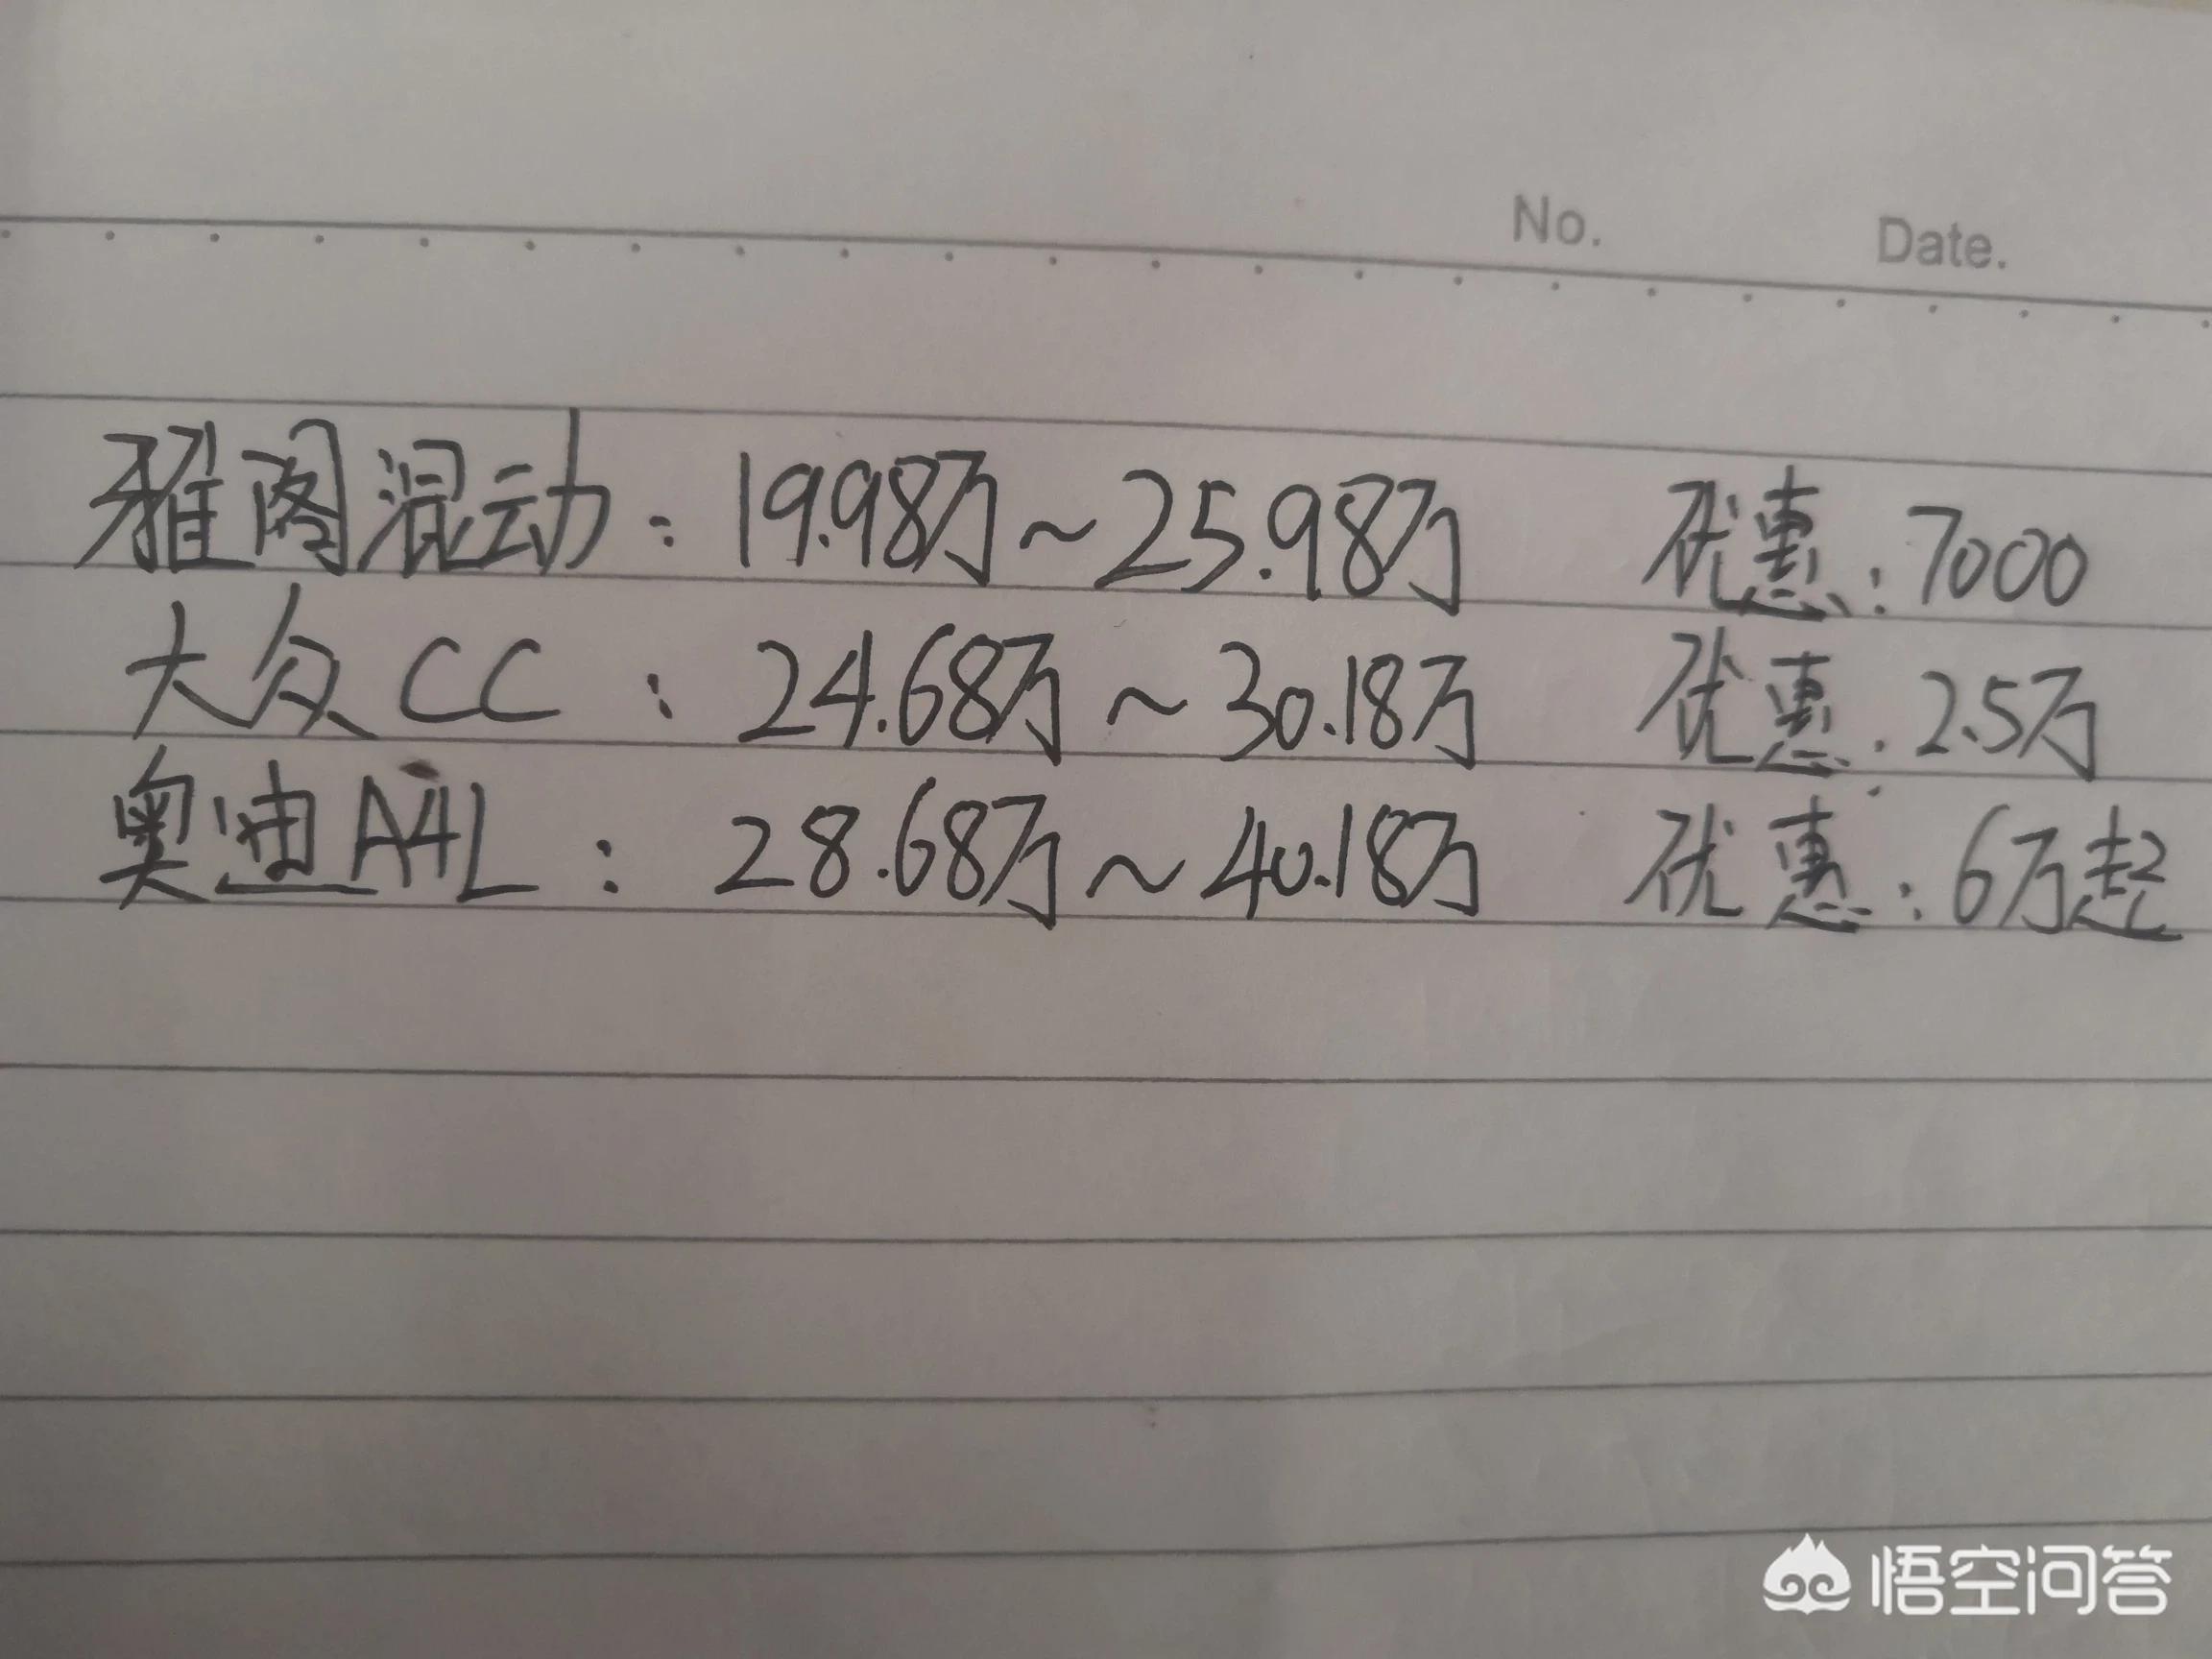 No. Date.
雅阁混动：19.98万～25.98万 优惠：7000
大众CC：24.68万～30.18万 优惠：2.5万
奥迪A4L：28.68万～40.18万 优惠：6万起
悟空问答